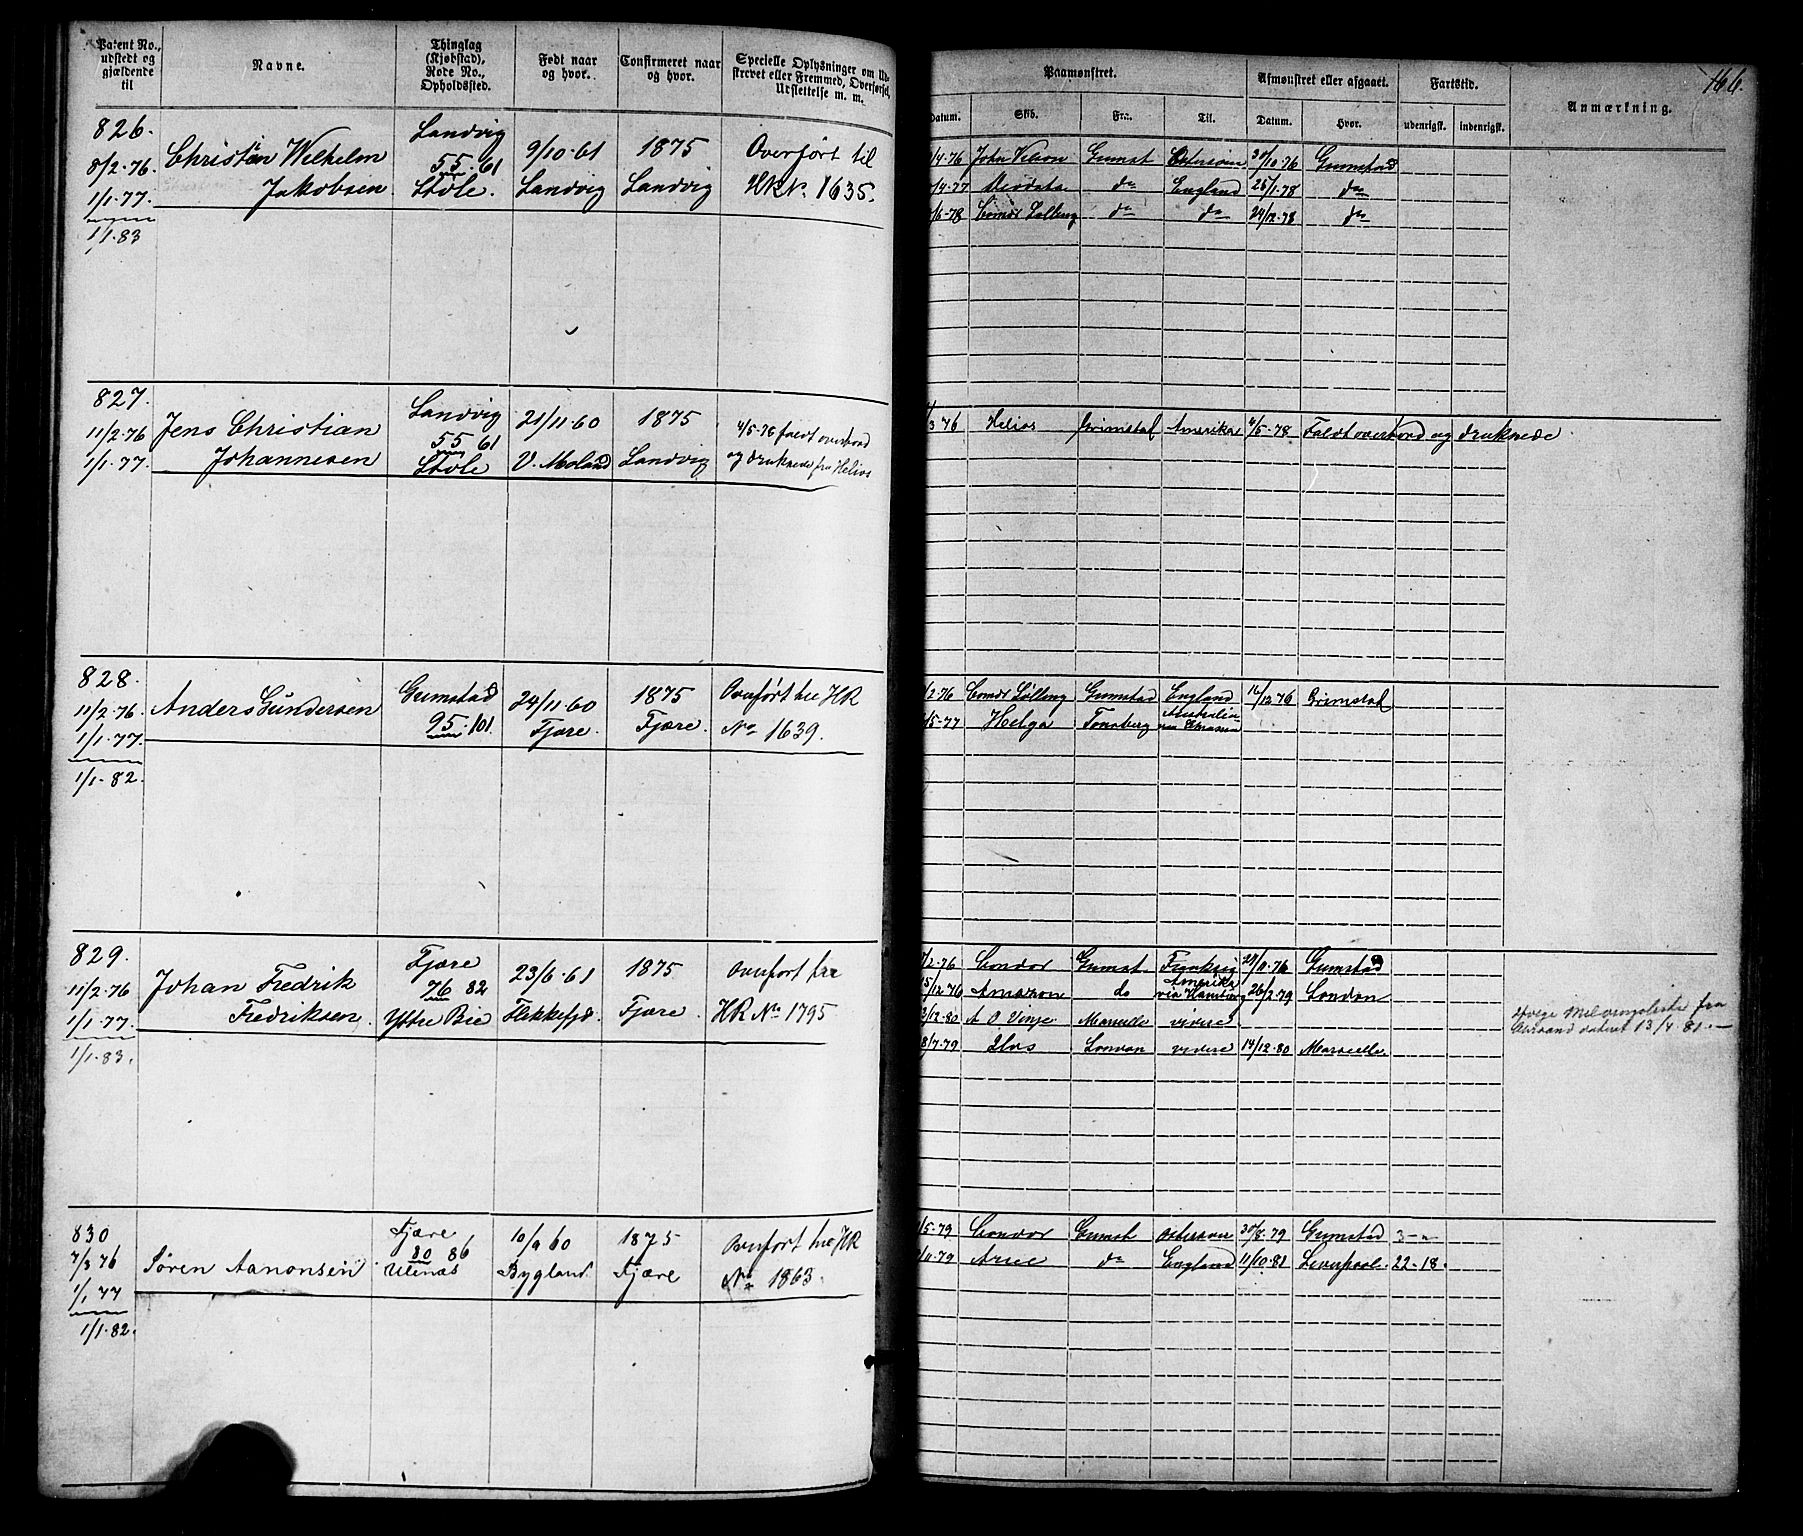 Patent No., udstedt og gjældende til
Navne.
Thinglag (Kjøbstad), Rode No., Opholdssted.
Født naar og hvor.
Confirmeret naar og hvor.
Specielle Oplysninger om Ud-
skrevet eller Fremmed, Overførsel,
Udslettelse m. m.
Paamønstret.
Afmønstret eller afgaaet.
Fartstid.
Anmærkning.
166.
Datum.
Skib.
Fra.
Til.
Datum.
Hvor.
udenrigsk.
indenrigsk.
826.
8/2-76
1/1-77.
1/1-83
Christian Wilhelm
Jakobsen
Landvig
55.61
Støle.
9/10-61
Landvig
1875
Landvig
Overført til
HR No. 1635.
/4-76 John Grimst 30/10-76 Grimstad
/4-77 do England 25/1-78 do
/6-78 do do 24/12-78 do
827.
11/2-76
1/1-77.
Jens Christian
Johannesen
Landvig
55 61
Støle
21/11-60
V. Moland
1875
Landvig
4/5-76 faldt overbord
og druknede fra Helios
/3 76 Helios Grimstad Amerika 4/5-78 Faldt overbord og druknede
828.
11/2-76
1/1-77.
1/1-82.
Anders Gundersen
Grimstad
95.101
24/11-60
Fjære.
1875
Fjære.
Overført til HR
No 1639.
/2-76 Grimstad England 14/12-76 Grimstad
/5-77 Helga Tønsberg Australia
829.
11/2-76
1/1-77.
1/1-83.
Johan Fredrik
Fredriksen.
Fjære
76 82
Yttre Bie
23/6-61
Flekkefjd.
1875
Fjære.
Overført fra
HR No 1795
/2-76 Condor Grimst 29/11-76 Grimstad
5/12-76 Amazon do Amerika via Hamburg 26/2-79 London
3/12-80 A O Vinje Marseille videre
8/7-79 London videre 14/12-80 Marseille
dateret 13/4 81.
830
7/3 76
1/1 77
1/1-82.
Søren Aanonsen
Fjære
80 86
10/9 60
Bygland.
1875
Fjære
Overført til HR
No 1863.
/5-79 Condor Grimst 30/8-79 Grimstad
/11-79 do England 11/10-81 Liverpool. 22-18.